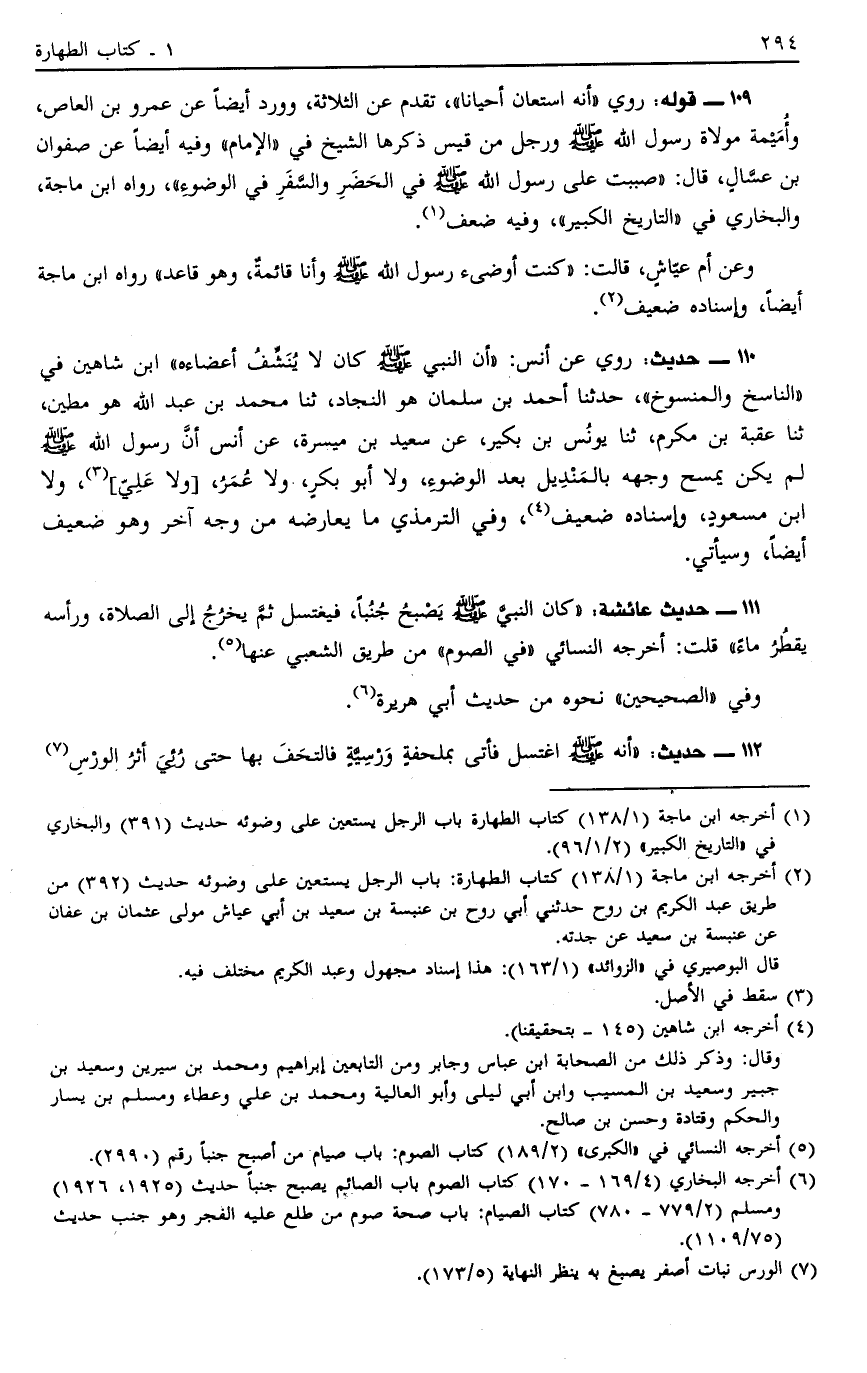 ٢٩٤
١ - كتاب الطهارة
١٠٩ ـ قوله: روي «أنه استعان أحيانا»، تقدم عن الثلاثة، وورد أيضاً عن عمرو بن العاص،
وأُمَيْمة مولاة رسول الله ﷺ ورجل من قيس ذكرها الشيخ في «الإمام» وفيه أيضاً عن صفوان
بن عسَّالٍ، قال: «صببت على رسول الله ﷺ في الحَضَرِ والسَّفَرِ في الوضوءِ»، رواه ابن ماجة،
والبخاري في «التاريخ الكبير»، وفيه ضعف(١).
وعن أم عيّاشٍ، قالت: «كنت أوضىء رسول الله ﷺ وأنا قائمةٌ، وهو قاعد» رواه ابن ماجة
أيضاً، وإسناده ضعيف(٢).
١١٠ ـ حديث: روي عن أنس: «أن النبي ﷺ كان لا يُنَشِّفُ أعضاءه» ابن شاهين في
«الناسخ والمنسوخ»، حدثنا أحمد بن سلمان هو النجاد، ثنا محمد بن عبد الله هو مطين،
ثنا عقبة بن مكرم، ثنا يونُس بن بكير، عن سعيد بن ميسرة، عن أنس أنَّ رسول الله ﷺ
لم يكن يمسح وجهه بالمَنْدِيل بعد الوضوءِ، ولا أبو بكرٍ، ولا عُمَرُ، [ولا عَلِيّ](٣)، ولا
ابن مسعودٍ، وإسناده ضعيف(٤)، وفي الترمذي ما يعارضه من وجه آخر وهو ضعيف
أيضاً، وسيأتي.
١١١ ـ حديث عائشة: «كان النبيَّ ﷺ يَصْبحُ جُنُباً، فيغتسل ثمَّ يخرُجُ إلى الصلاة، ورأسه
يقطُرُ ماءً» قلت: أخرجه النسائي «في الصوم» من طريق الشعبي عنها(٥).
وفي «الصحيحين» نحوه من حديث أبي هريرة(٦).
١١٢ ـ حديث: «أنه ﷺ اغتسل فأتى بملحفةٍ وَرْسِيَّةٍ فالتحَفَ بها حتى رُئِيَ أثرُ الورْسِ(٧)
(١) أخرجه ابن ماجة (١٣٨/١) كتاب الطهارة باب الرجل يستعين على وضوئه حديث (٣٩١) والبخاري
في «التاريخ الكبير» (٩٦/١/٢).
(٢) أخرجه ابن ماجة (١٣٨/١) كتاب الطهارة: باب الرجل يستعين على وضوئه حديث (٣٩٢) من
طريق عبد الكريم بن روح حدثني أبي روح بن عنبسة بن سعيد بن أبي عياش مولى عثمان بن عفان
عن عنبسة بن سعيد عن جدته.
قال البوصيري في «الزوائد» (١٦٣/١): هذا إسناد مجهول وعبد الكريم مختلف فيه.
(٣) سقط في الأصل.
(٤) أخرجه ابن شاهين (١٤٥ - بتحقيقنا).
وقال: وذكر ذلك من الصحابة ابن عباس وجابر ومن التابعين إبراهيم ومحمد بن سيرين وسعيد بن
جبير وسعيد بن المسيب وابن أبي ليلى وأبو العالية ومحمد بن علي وعطاء ومسلم بن يسار
والحكم وقتادة وحسن بن صالح.
(٥) أخرجه النسائي في «الكبرى» (١٨٩/٢) كتاب الصوم: باب صيام من أصبح جنباً رقم (٢٩٩٠).
(٦) أخرجه البخاري (١٦٩/٤ - ١٧٠) كتاب الصوم باب الصائم يصبح جنباً حديث (١٩٢٥، ١٩٢٦)
ومسلم (٧٧٩/٢ - ٧٨٠) كتاب الصيام: باب صحة صوم من طلع عليه الفجر وهو جنب حديث
(١١٠٩/٧٥).
(٧) الورس نبات أصفر يصبغ به ينظر النهاية (١٧٣/٥).